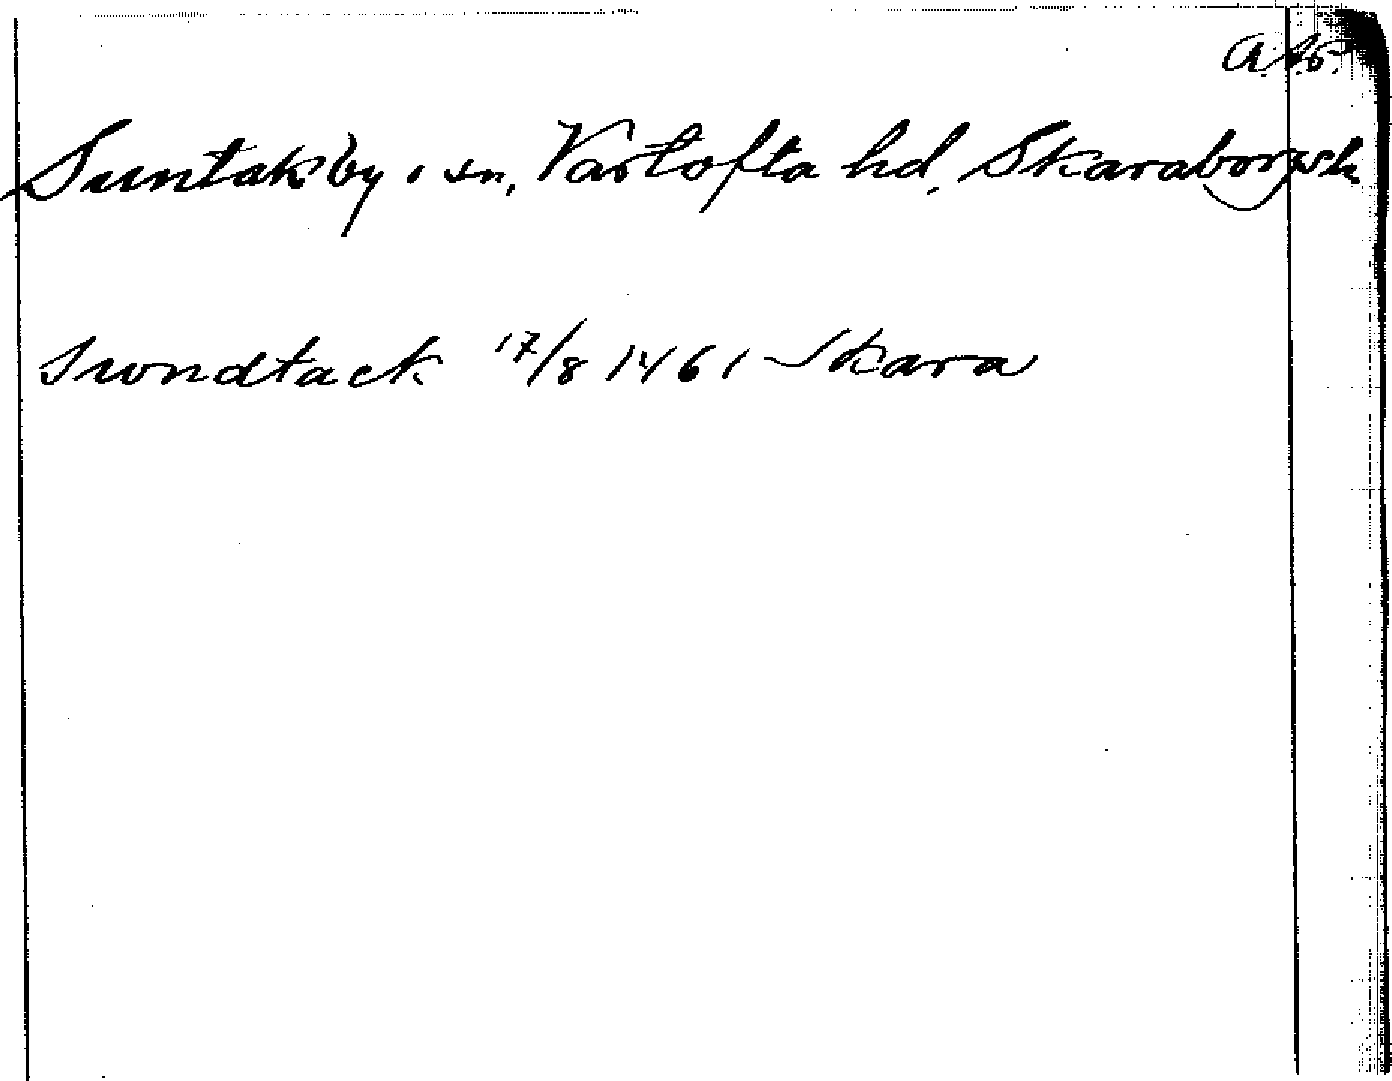 Suntak by i sn, Vartofta hd, Skaraborgs l.
Swndtack 17/8 1461 Skara